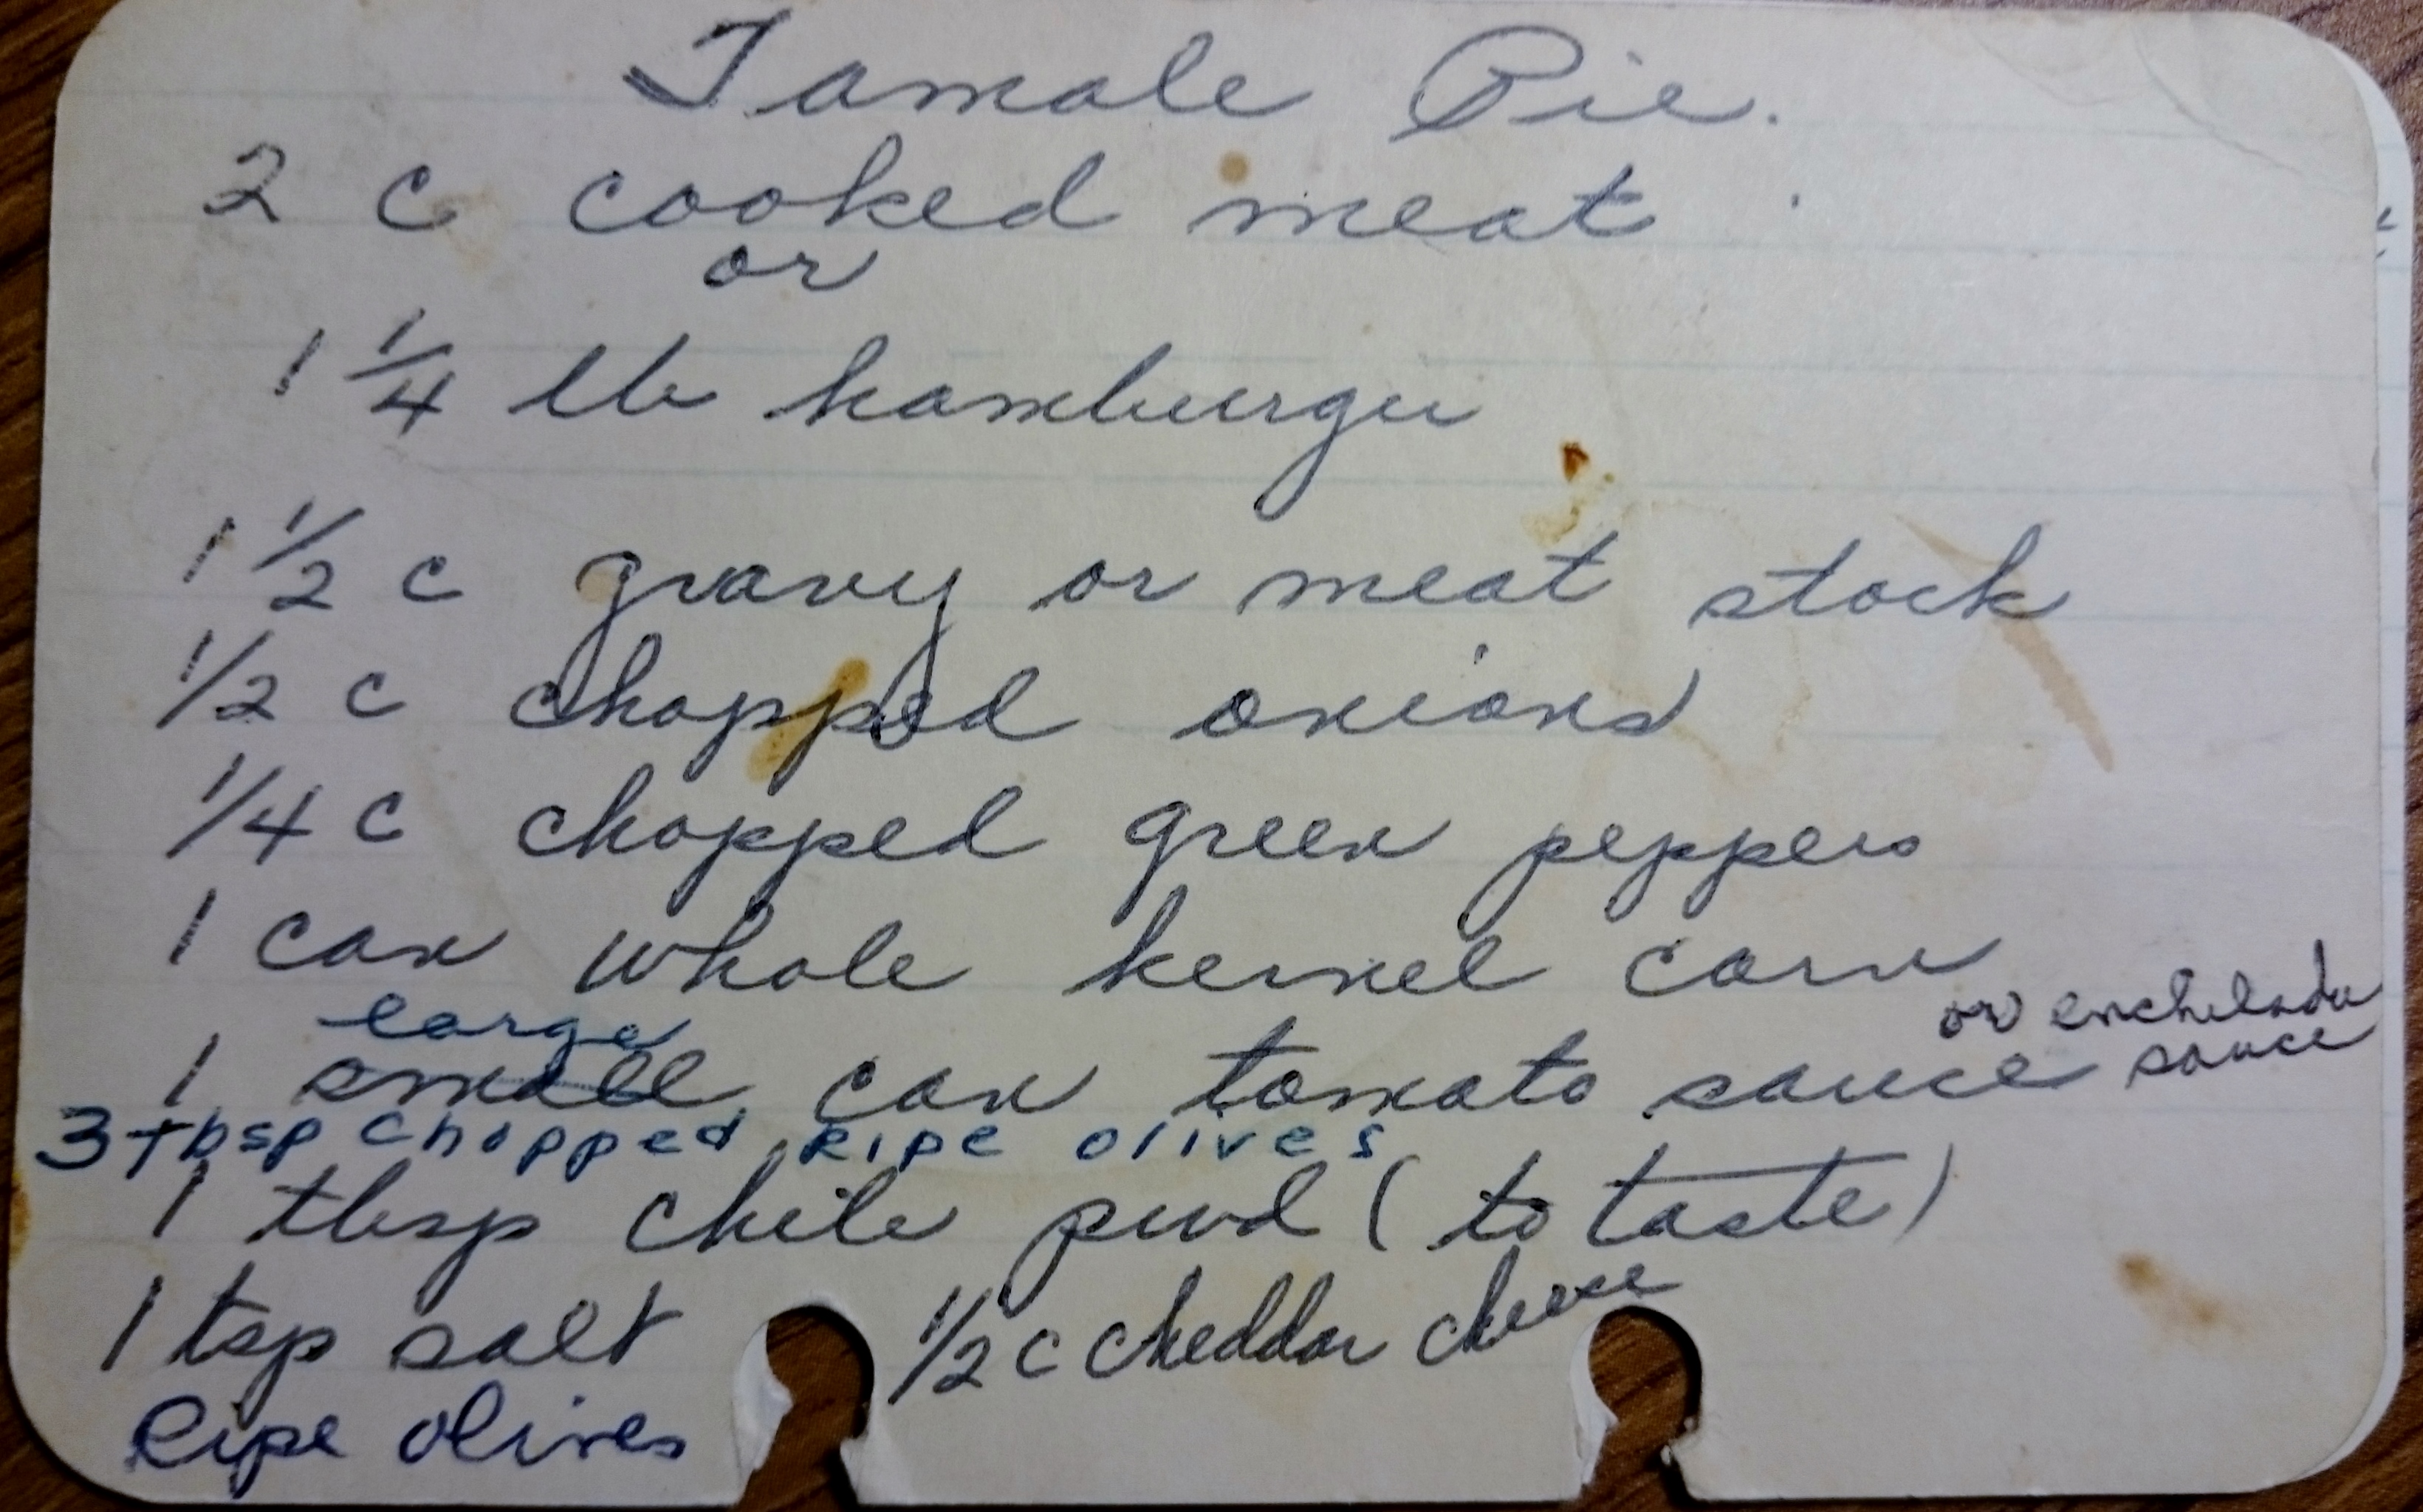 Tamale Pie.
2 c cooked meat
or
1 1/4 lb hamburger
1 1/2 c gravy or meat stock
1/2 c chopped onions
1/4 c chopped green peppers
1 can whole kernel corn
large
or enchelada
1 small can tomato sauce sauce
3 tbsp chopped Ripe olives
1 tbsp chile pwd (to taste)
1 tsp salt 1/2 c cheddar cheese
Ripe olives